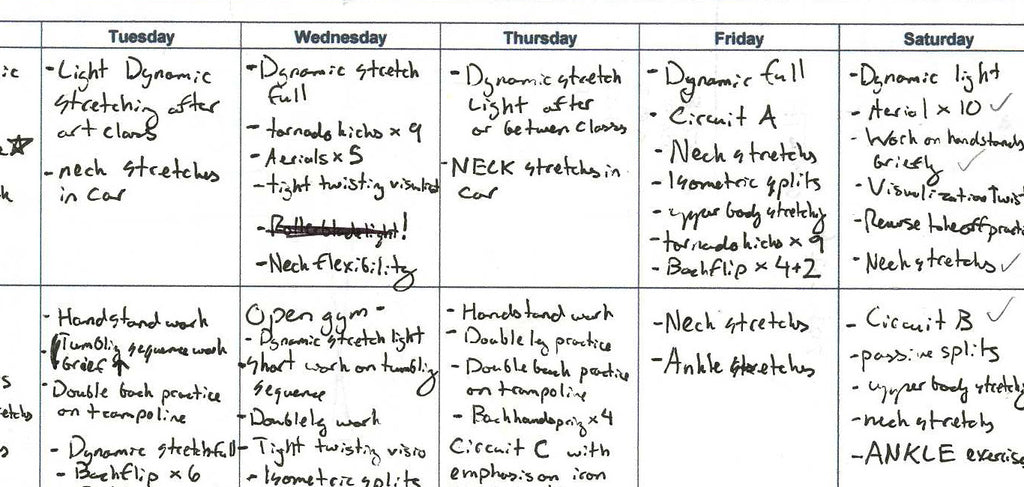 Tuesday
Wednesday
Thursday
Friday
Saturday
ic
- Light Dynamic
stretching after
art class
- neck stretches
in car
- Dynamic stretch
full
- tornado kicks x 9
- Aerials x 5
- tight twisting
!
- Neck flexibility
- Dynamic stretch
Light after
or between classes
- NECK stretches in
car
- Dynamic full
- Circuit A
- Neck stretchs
- Isometric splits
- upper body stretching
- tornado kicks x 9
- Backflip x 4+2
- Dynamic light
- Aerial x 10 ✓
- Work on handstands
briefly ✓
- Visualization Twis
- Reverse takeoff pract
- Neck stretchs ✓
- Handstand work
- Tumbling sequence work
brief
- Double back practice
on trampoline
- Dynamic stretch full
- Backflip x 6
Open gym -
- Dynamic stretch light
- short work on tumbling
sequence
- Double leg work
- Tight twisting visio
- Isometric splits
- Handstand work
- Double leg practice
- Double back practice
on trampoline
- Backhandspring x 4
Circuit C with
emphasis on iron
- Neck stretchs
- Ankle stretches
- Circuit B ✓
- passive splits
- upper body stretching
- neck stretchs
- ANKLE exercis